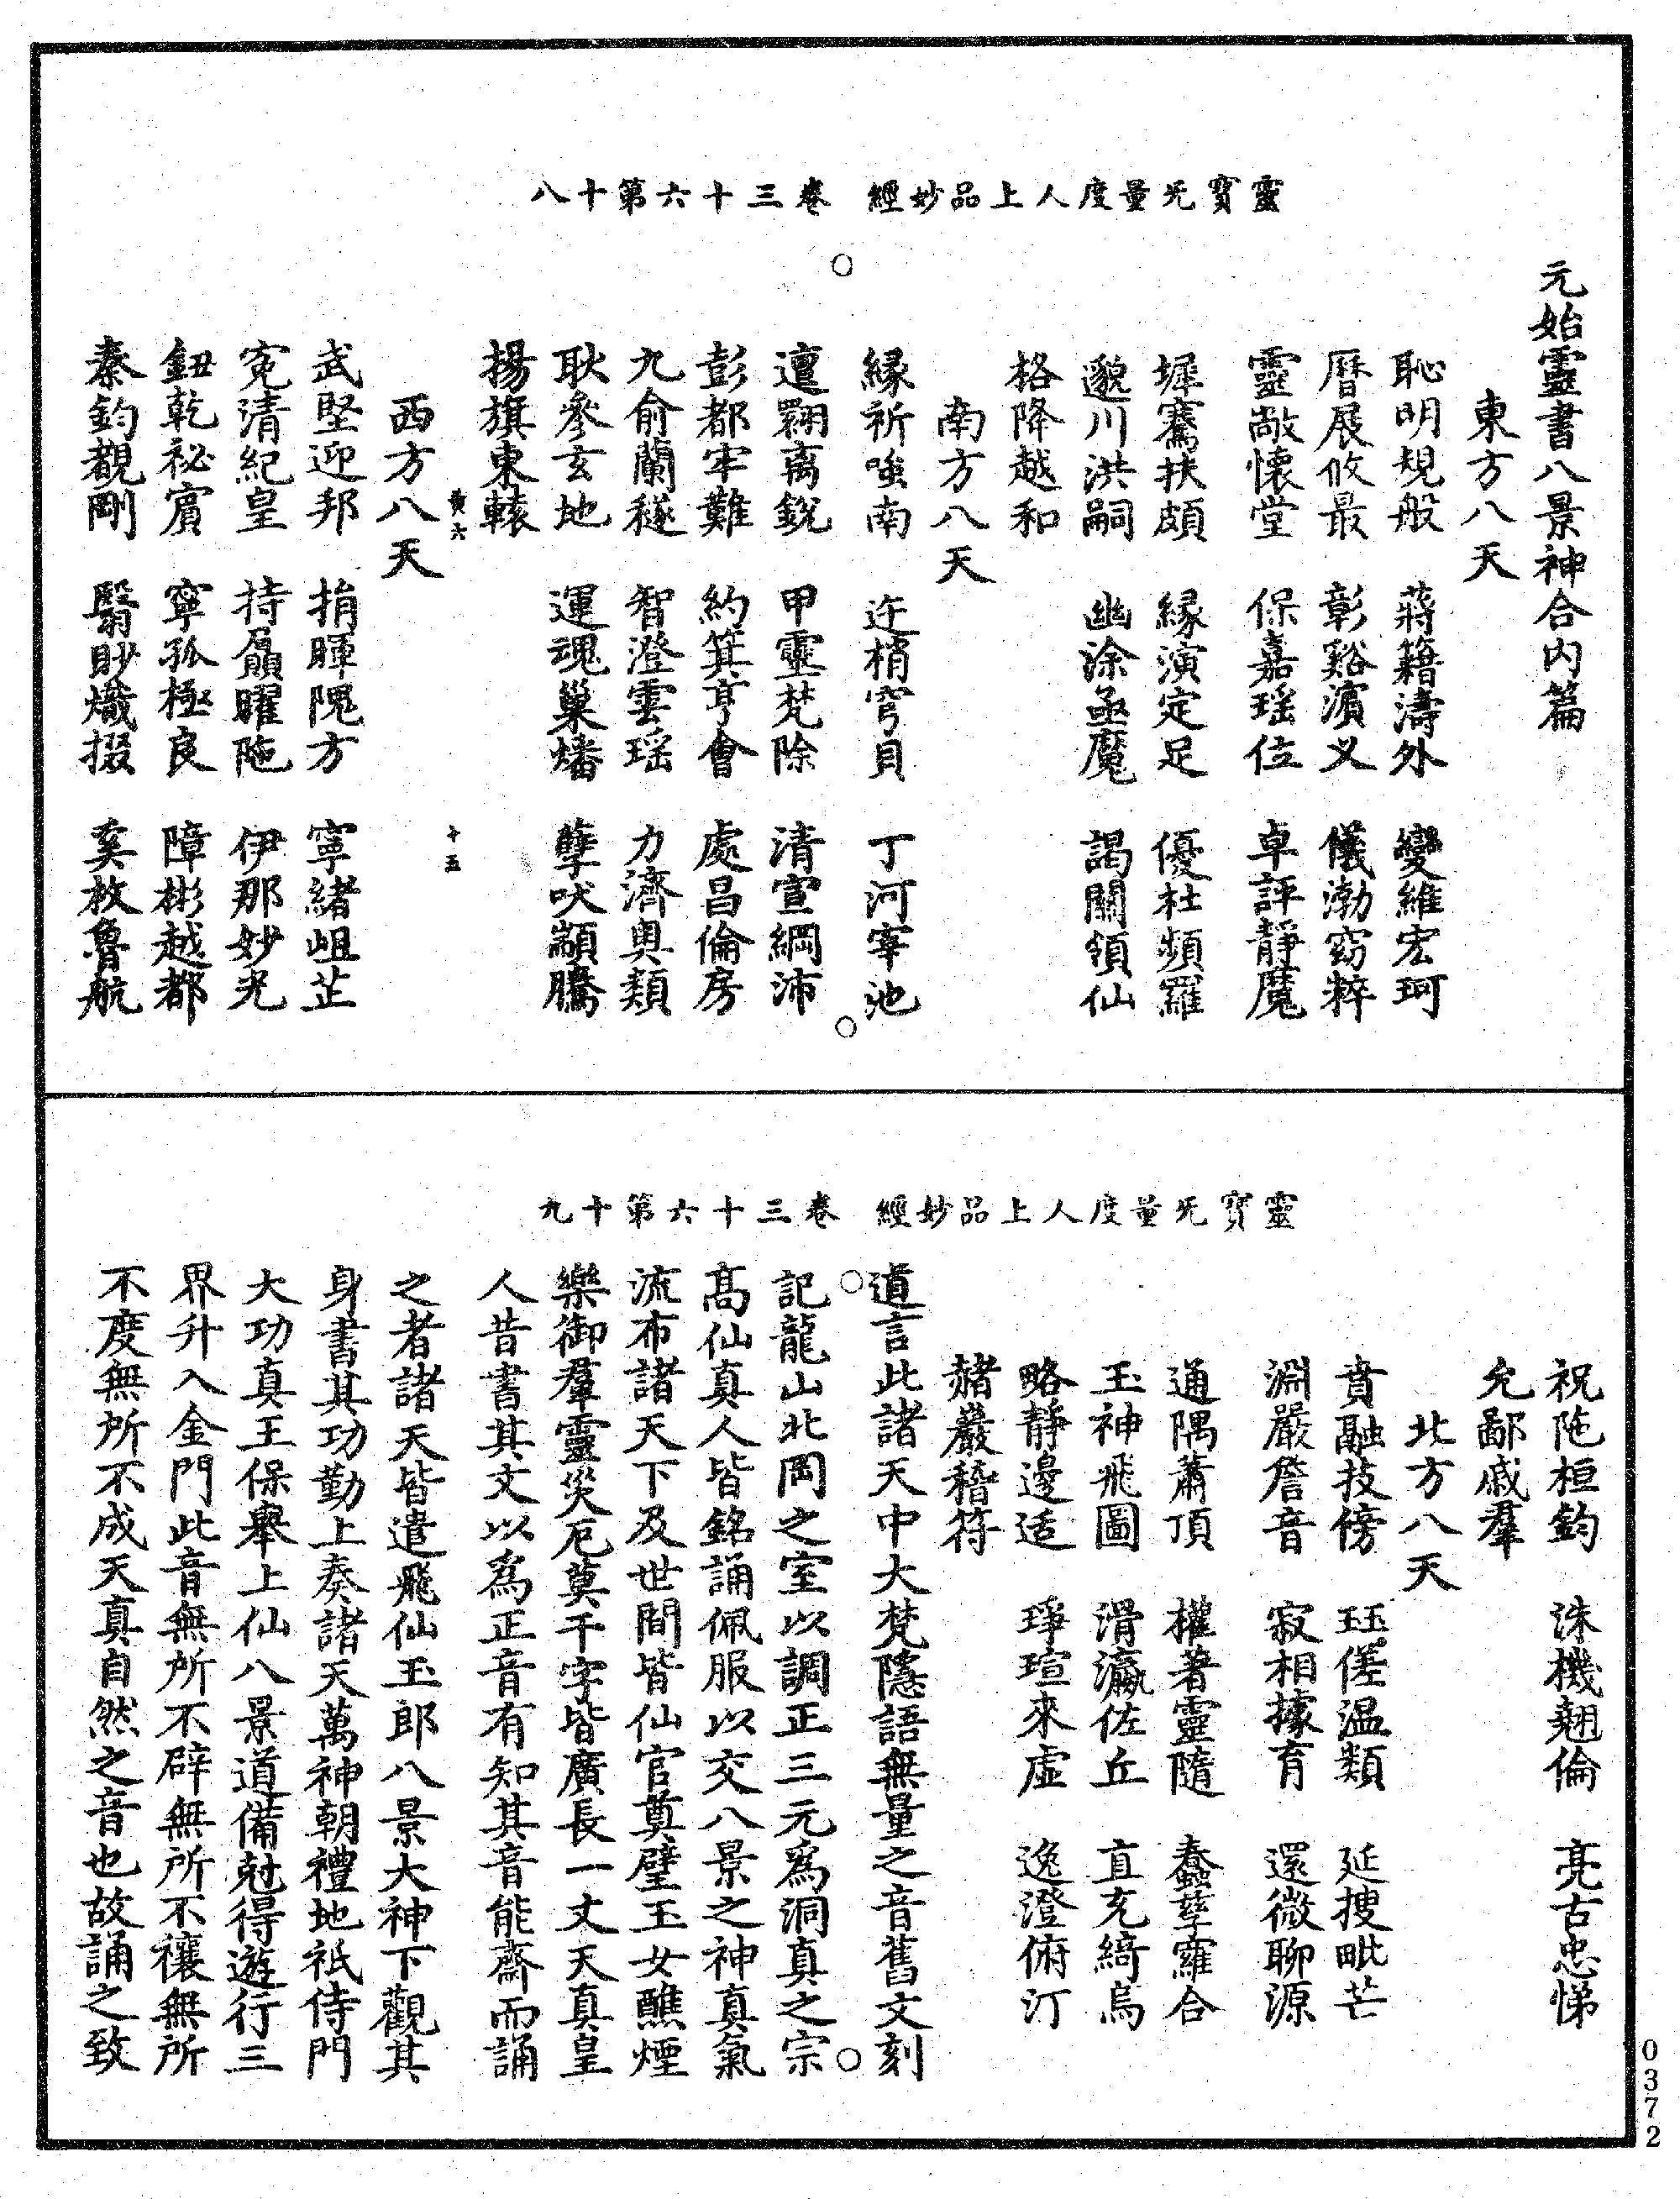 靈寶旡量度人上品妙經　卷三十六第十八
元始靈書八景神合內篇
東方八天
恥明規般　蔣籍濤外　變維宏珂
曆展攸最　彰谿濵义　儀渤窈粹
靈敞懷堂　保嘉瑶位　卓評靜魔
墀騫扶頗　縁演定足　優杜頻羅
邈川洪嗣　幽涂亟魔　謁關領仙
格降越和
南方八天
縁祈嗤南　迕梢穹貝　丁河宰池
邅翾离銳　甲靈梵除　清宣綱沛
彭都牢難　約箕亨會　處昌倫房
九俞蘭穟　智澄雲瑶　力濟奥類
耿參玄地　運魂巢燔　孽吠顓騰
揚旗東轅
黄六　十五
西方八天
武堅迎邦　捐暉隗方　寧緒岨芷
寃清紀皇　持贔曜陁　伊那妙光
鈕乾祕賔　寧孤極良　障彬越都
秦鈞觀剛　翳眇熾掇　奚枚魯航
靈寶旡量度人上品妙經　卷三十六第十九
祝陁桓鈞　洙機翹倫　亮古忠悌
允鄙戚羣
北方八天
賁融技傍　珏傞温類　延搜毗芒
淵嚴詹音　寂相據育　還微聊源
通隅蕭頂　權著靈隨　蠢孳羅合
玉神飛圖　滑瀛佐丘　直充綺烏
略靜邊适　琤瑄來虚　逸澄俯汀
赭巖稽符
道言此諸天中大梵隱語無量之音舊文刻
記龍山北岡之室以調正三元爲洞真之宗
髙仙真人皆銘誦佩服以交八景之神真氣
流布諸天下及世間皆仙官奠璧玉女醮煙
樂御羣靈災厄莫干字皆廣長一丈天真皇
人昔書其文以爲正音有知其音能齋而誦
之者諸天皆遣飛仙玉郎八景大神下觀其
身書其功勤上奏諸天萬神朝禮地祇侍門
大功真王保舉上仙八景道備尅得遊行三
界升入金門此音無所不辟無所不禳無所
不度無所不成天真自然之音也故誦之致
0372